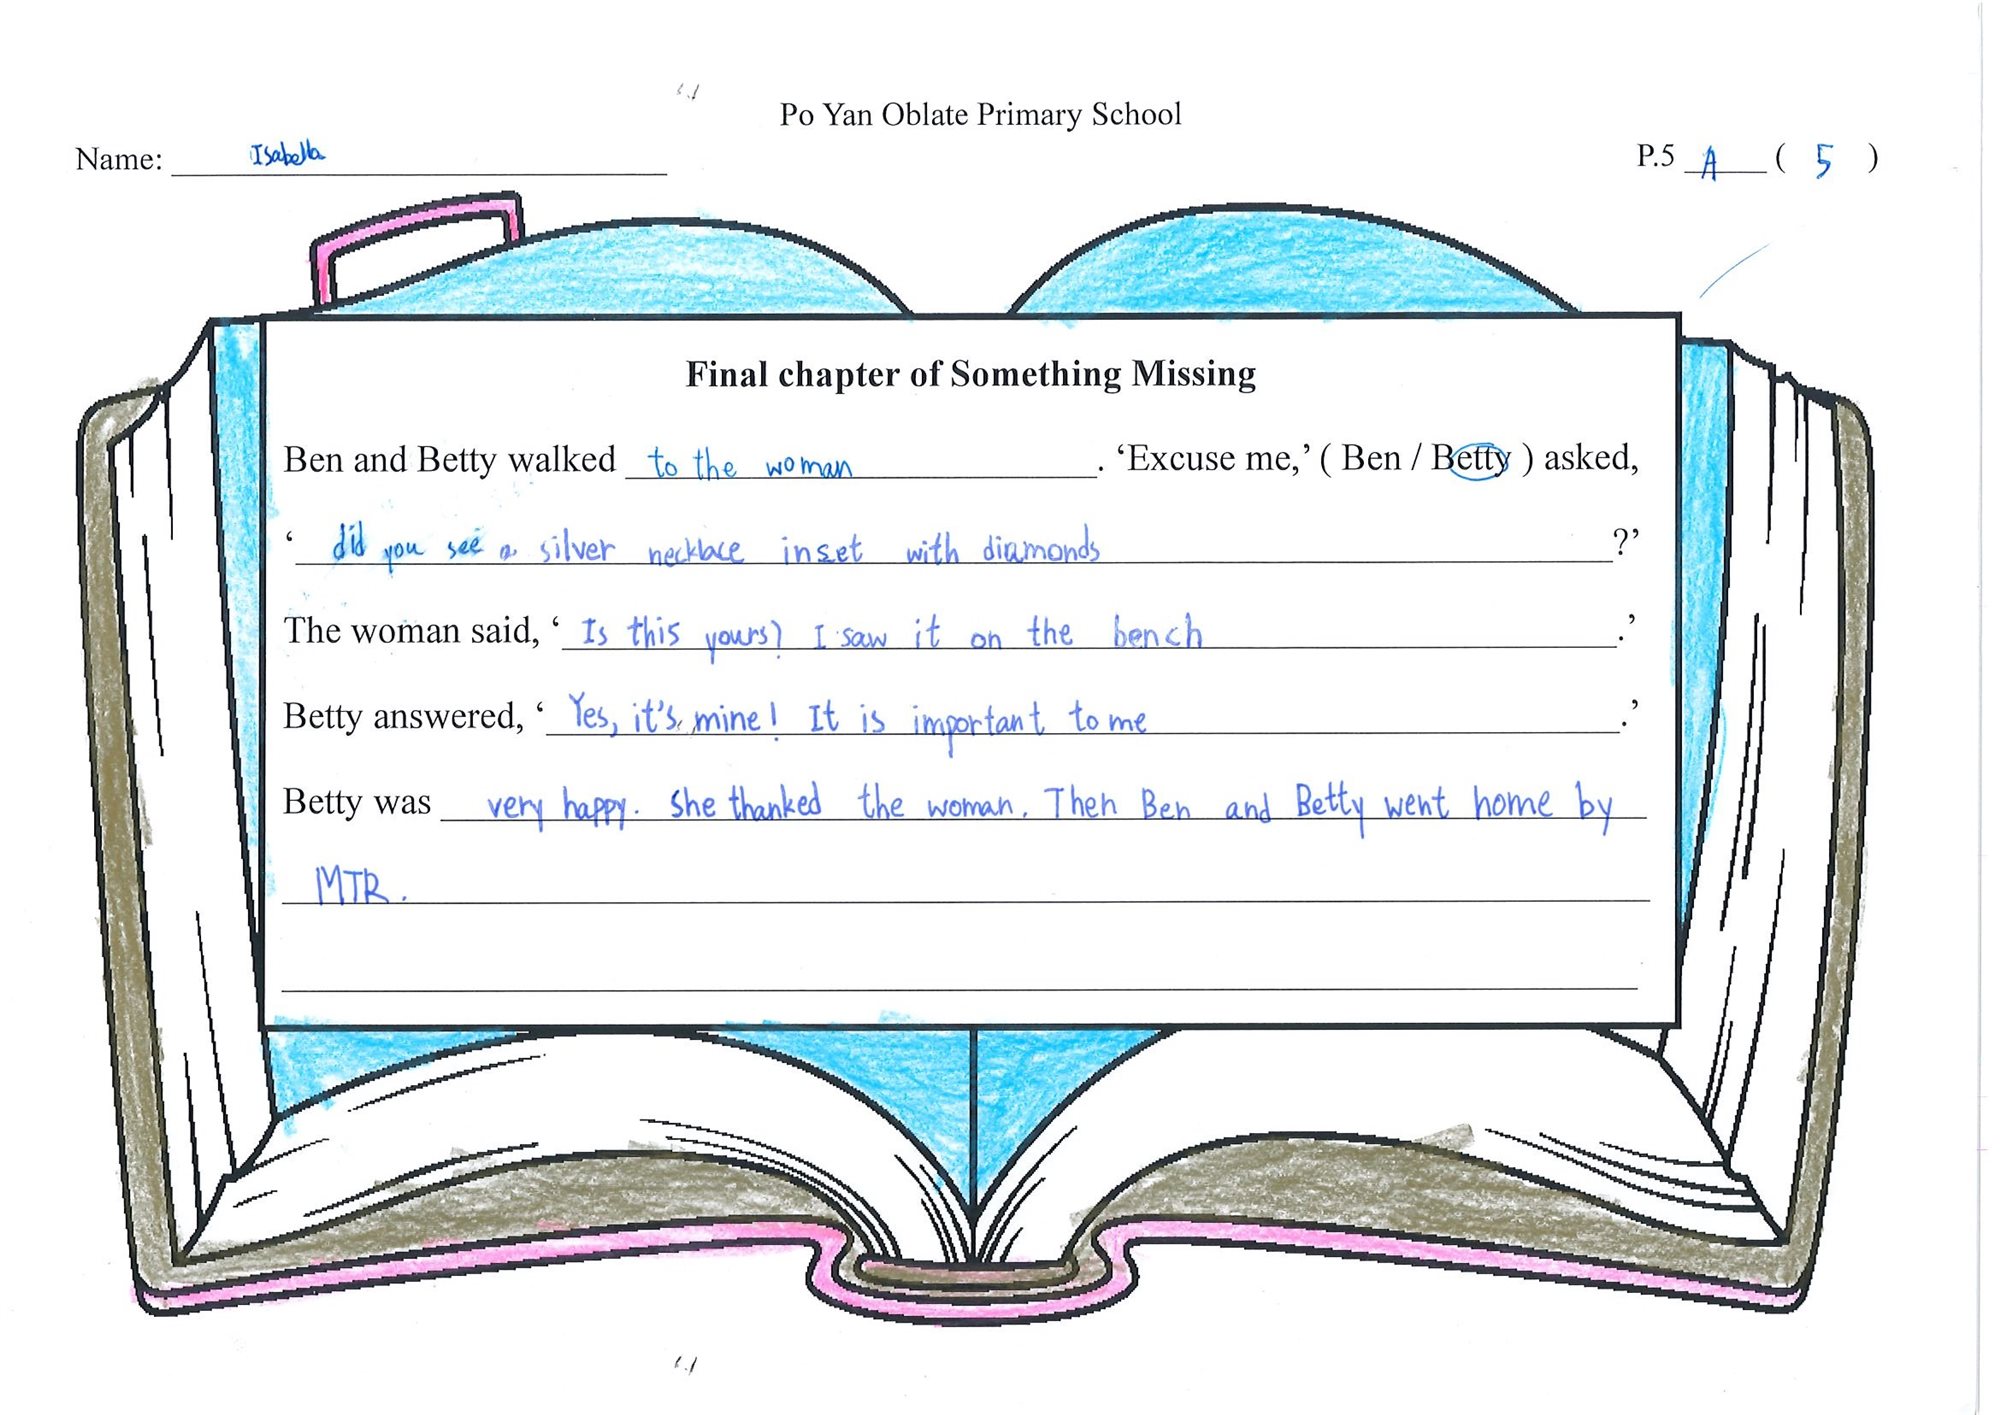 Po Yan Oblate Primary School
Name: Isabella P.5 A ( 5 )
Final chapter of Something Missing
Ben and Betty walked to the woman. ‘Excuse me,’ ( Ben / Betty ) asked,
‘ did you see a silver necklace inset with diamonds ?’
The woman said, ‘ Is this yours? I saw it on the bench .’
Betty answered, ‘ Yes, it's mine! It is important to me .’
Betty was very happy. She thanked the woman. Then Ben and Betty went home by
MTR.